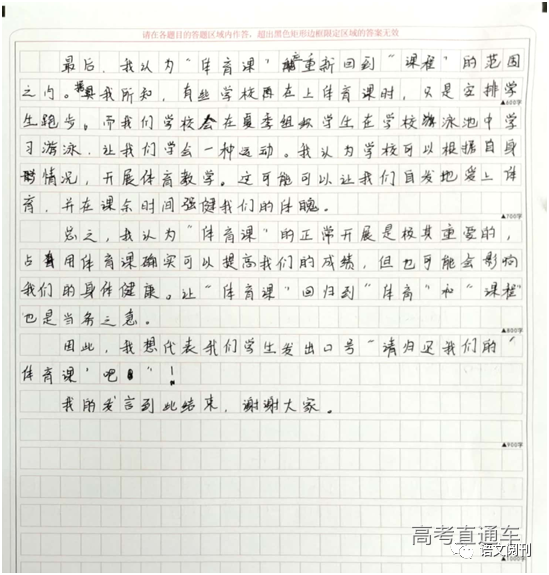 请在各题目的答题区域内作答，超出黑色矩形边框限定区域的答案无效
最后，我认为“体育课”应重新回到“课程”的范围
之内。据我所知，有些学校在上体育课时，只是安排学
▲600字
生跑步。而我们学校会在夏季组织学生在学校游泳池中学
习游泳，让我们学会一种运动。我认为学校可以根据自身
情况，开展体育教学。这可能可以让我们自发地爱上体
育，并在课余时间强健我们的体魄。
▲700字
总之，我认为“体育课”的正常开展是极其重要的，
占用体育课确实可以提高我们的成绩，但也可能会影响
我们的身体健康。让“体育课”回归到“体育”和“课程”
也是当务之急。
▲800字
因此，我想代表我们学生发出口号“请归还我们的‘
体育课’吧”！
我的发言到此结束，谢谢大家。
▲900字
高考直通车
语文阅刊
▲1000字